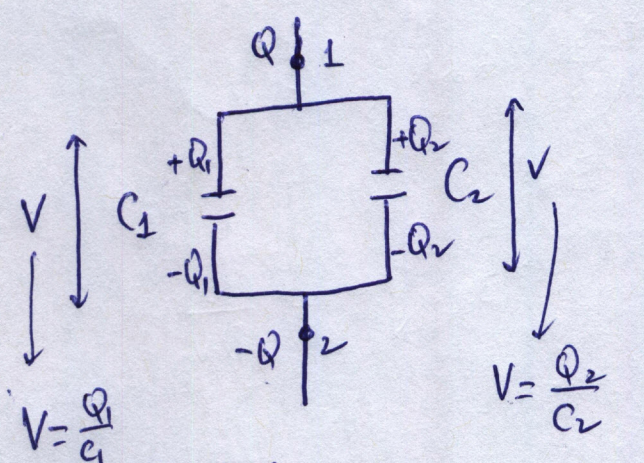 Q 1
+Q₁ +Q₂
V C₁ C₂ V
-Q₁ -Q₂
-Q 2
V = Q₁/C₁
V = Q₂/C₂